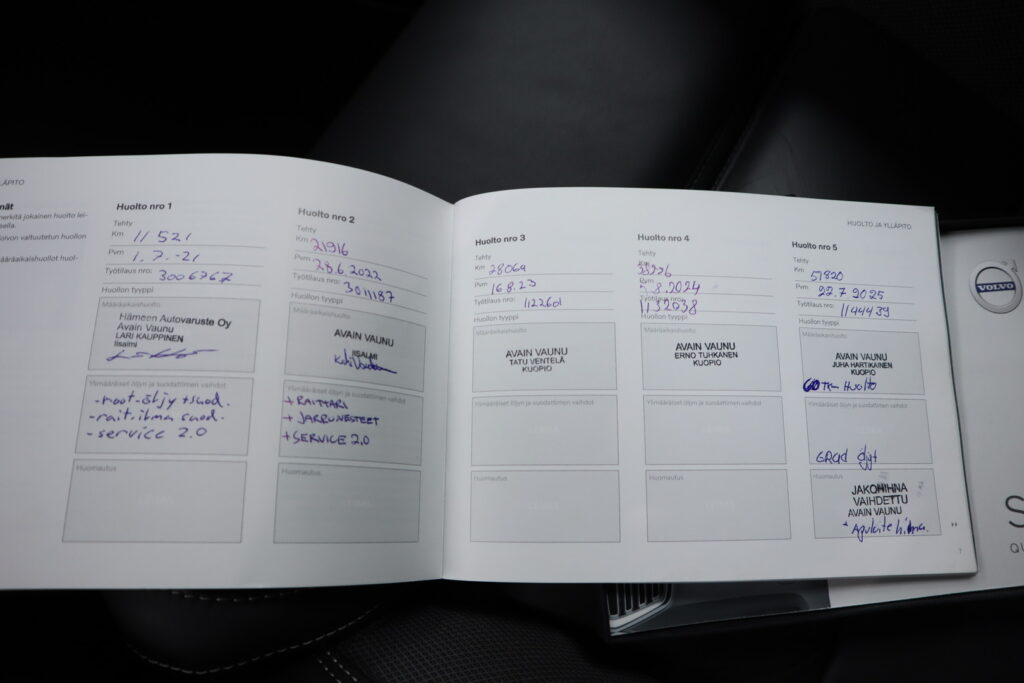 LÄPITO
nät
merkitä jokainen huolto lei-
sella.
olvon valtuutetun huollon
määräaikaishuollot huol-
Huolto nro 1
Tehty
Km 11 521
Pvm 1.7.-21
Työtilaus nro: 3006767
Huollon tyyppi
Määräaikaishuolto
Hämeen Autovaruste Oy
Avain Vaunu
LARI KAUPPINEN
Iisalmi
Ylimääräiset öljyn ja suodattimen vaihdot
-moot.öljy + suod.
-rait.ilma suod.
-service 2.0
Huomautus
Huolto nro 2
Tehty
Km 21916
Pvm 28.6.2022
Työtilaus nro: 3011187
Huollon tyyppi
Määräaikaishuolto
AVAIN VAUNU
IISALMI
Ylimääräiset öljyn ja suodattimen vaihdot
+RAITTARI
+JARRUNESTEET
+SERVICE 2.0
Huomautus
Huolto nro 3
Tehty
Km 28064
Pvm 16.8.23
Työtilaus nro:
Huollon tyyppi
Määräaikaishuolto
AVAIN VAUNU
TATU VENTELÄ
KUOPIO
Ylimääräiset öljyn ja suodattimen vaihdot
Huomautus
HUOLTO JA YLLÄPITO
Huolto nro 4
Tehty
Km
Pvm .8.2024
Työtilaus nro: 1132038
Huollon tyyppi
Määräaikaishuolto
AVAIN VAUNU
ERNO TUHKANEN
KUOPIO
Ylimääräiset öljyn ja suodattimen vaihdot
Huomautus
Huolto nro 5
Tehty
Km 57820
Pvm 22.7.2025
Työtilaus nro: 1144439
Huollon tyyppi
Määräaikaishuolto
AVAIN VAUNU
JUHA HARTIKAINEN
KUOPIO
60 TKm Huolto
Ylimääräiset öljyn ja suodattimen vaihdot
GRad öljyt
Huomautus
JAKOHIHNA
VAIHDETTU
AVAIN VAUNU
+ Apulaite hihna.
7
VOLVO
S
QU